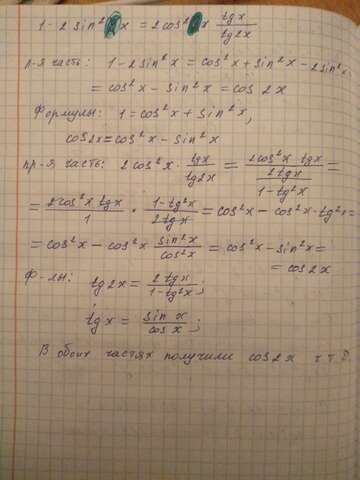 1 - 2 sin²x = 2cos²x tgx/tg2x
л-я часть: 1 - 2sin²x = cos²x + sin²x - 2sin²x
= cos²x - sin²x = cos 2x
Формулы: 1 = cos²x + sin²x,
cos2x = cos²x - sin²x
пр-я часть: 2cos²x · tgx/tg2x = (2cos²x · tgx)/(2tgx/(1-tg²x)) =
= (2cos²x tgx)/1 · (1-tg²x)/(2tgx) = cos²x - cos²x · tg²x =
= cos²x - cos²x sin²x/cos²x = cos²x - sin²x =
= cos2x
ф-лы: tg2x = 2tgx/(1-tg²x);
tgx = sin x/cos x;
В обоих частях получили cos2x ч.т.д.